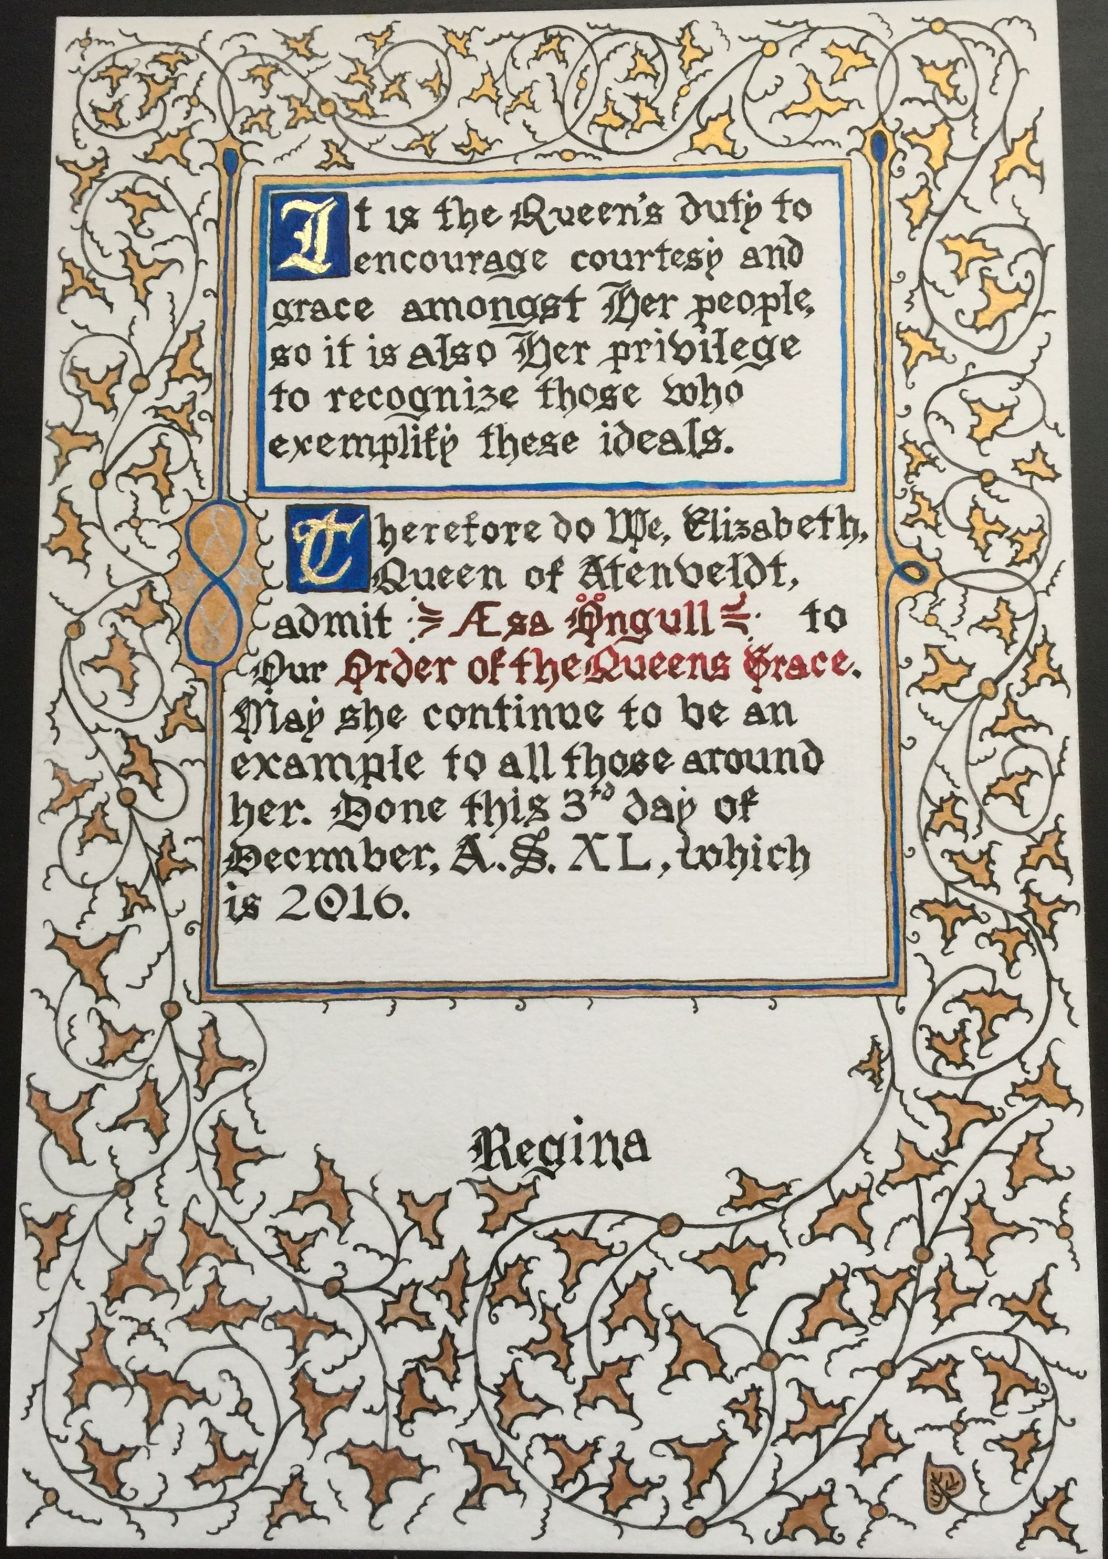 It is the Queen's duty to
encourage courtesy and
grace amongst Her people,
so it is also Her privilege
to recognize those who
exemplify these ideals.
Therefore do We, Elizabeth,
Queen of Atenveldt,
admit Æsa Öngull to
Our Order of the Queens Grace.
May she continue to be an
example to all those around
her. Done this 3rd day of
Decmber, A.S. XL, which
is 2016.
Regina